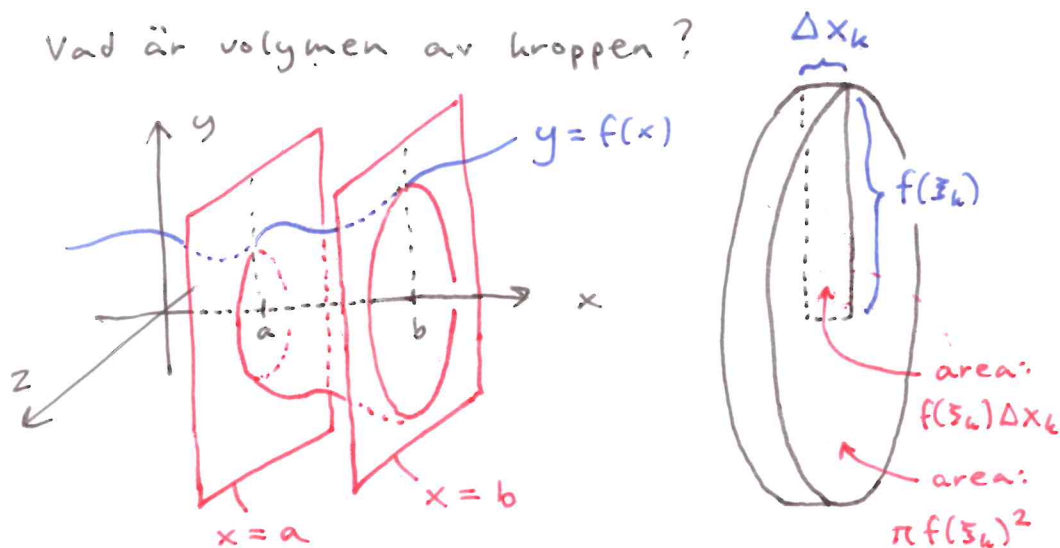 Vad är volymen av kroppen?
y
y = f(x)
a
b
x
z
x = a
x = b
Δx_k
f(ξ_k)
area:
f(ξ_k)Δx_k
area:
πf(ξ_k)²